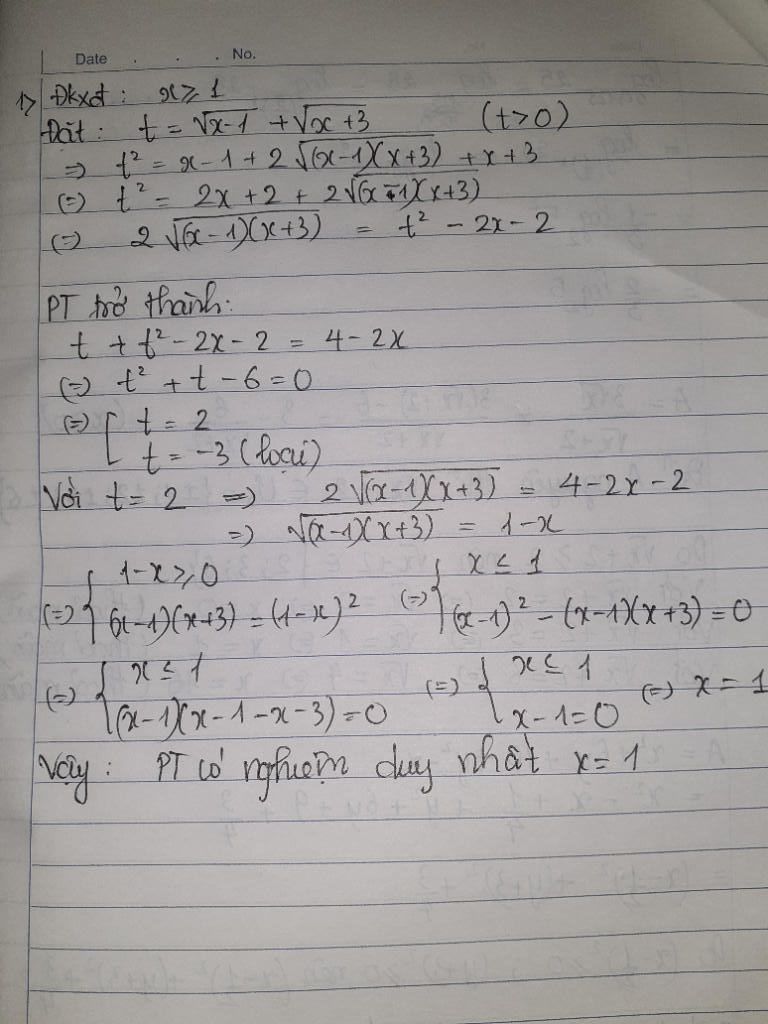 Date . . . No.
1> Đkxđ: x ≥ 1
Đặt: t = √(x-1) + √(x+3) (t>0)
⇒ t² = x - 1 + 2√((x-1)(x+3)) + x + 3
(=) t² = 2x + 2 + 2√((x-1)(x+3))
(=) 2√((x-1)(x+3)) = t² - 2x - 2
PT trở thành:
t + t² - 2x - 2 = 4 - 2x
(=) t² + t - 6 = 0
(=) [ t = 2
t = -3 (loại)
Với t = 2 => 2√((x-1)(x+3)) = 4 - 2x - 2
=> √((x-1)(x+3)) = 1 - x
(=) { 1-x ≥ 0 (=) { x ≤ 1
(x-1)(x+3) = (1-x)² (x-1)² - (x-1)(x+3) = 0
(=) { x ≤ 1 (=) { x ≤ 1 (=) x = 1
(x-1)(x-1-x-3) = 0 x-1 = 0
Vậy: PT có nghiệm duy nhất x = 1